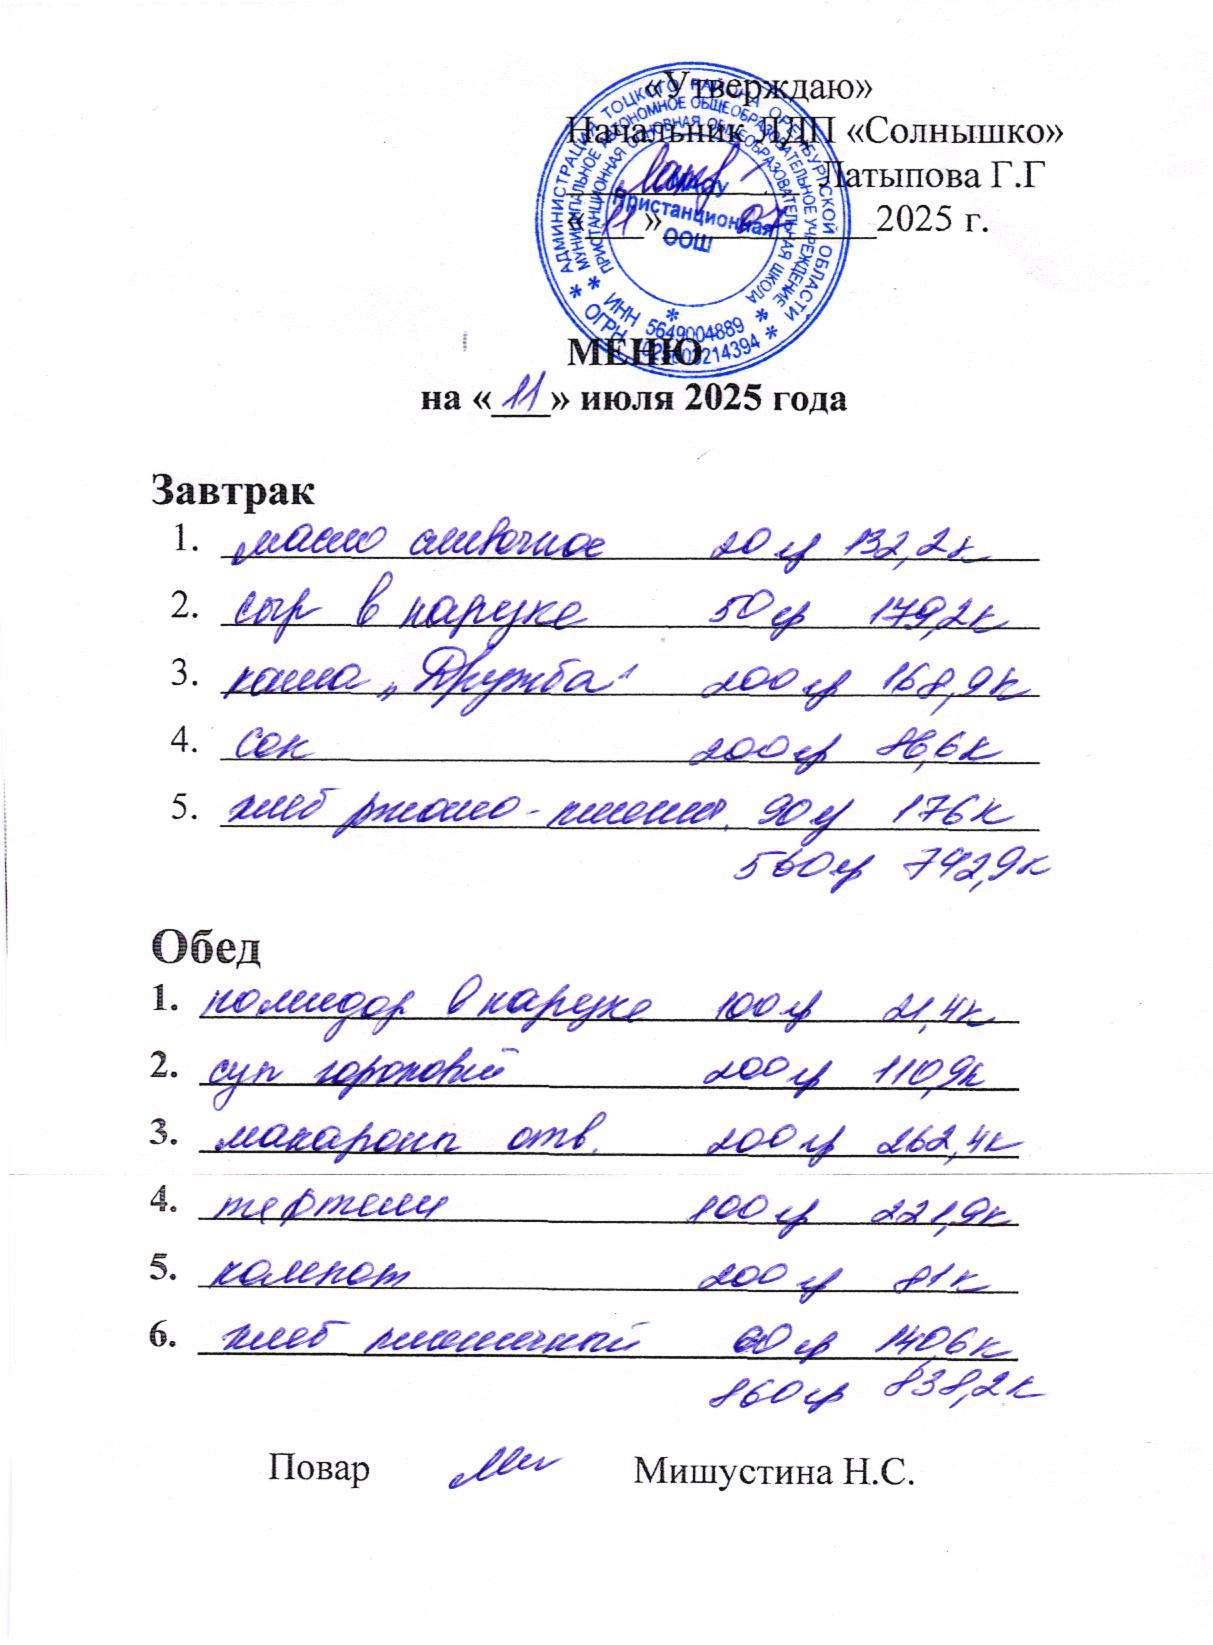 «Утверждаю»
Начальник ЛДП «Солнышко»
Латыпова Г.Г
«11» 07 2025 г.
АДМИНИСТРАЦИЯ ТОЦКОГО РАЙОНА ОРЕНБУРГСКОЙ ОБЛАСТИ
МУНИЦИПАЛЬНОЕ АВТОНОМНОЕ ОБЩЕОБРАЗОВАТЕЛЬНОЕ УЧРЕЖДЕНИЕ
ПРИСТАНЦИОННАЯ ОСНОВНАЯ ОБЩЕОБРАЗОВАТЕЛЬНАЯ ШКОЛА
Пристанционная
ООШ
ИНН 5649004889
ОГРН
МЕНЮ
на «11» июля 2025 года
Завтрак
1. масло сливочное 20 гр 132,2к
2. сыр в нарезке 50 гр 179,2к
3. каша „Дружба" 200 гр 168,9к
4. сок 200 гр 86,6к
5. хлеб ржано-пшенич. 90 гр 176к
560 гр 742,9к
Обед
1. помидор в нарезке 100 гр 21,4к
2. суп гороховый 200 гр 110,9к
3. макароны отв. 200 гр 262,4к
4. тефтели 100 гр 221,9к
5. компот 200 гр 81к
6. хлеб пшеничный 60 гр 140,6к
860 гр 838,2к
Повар Мишустина Н.С.